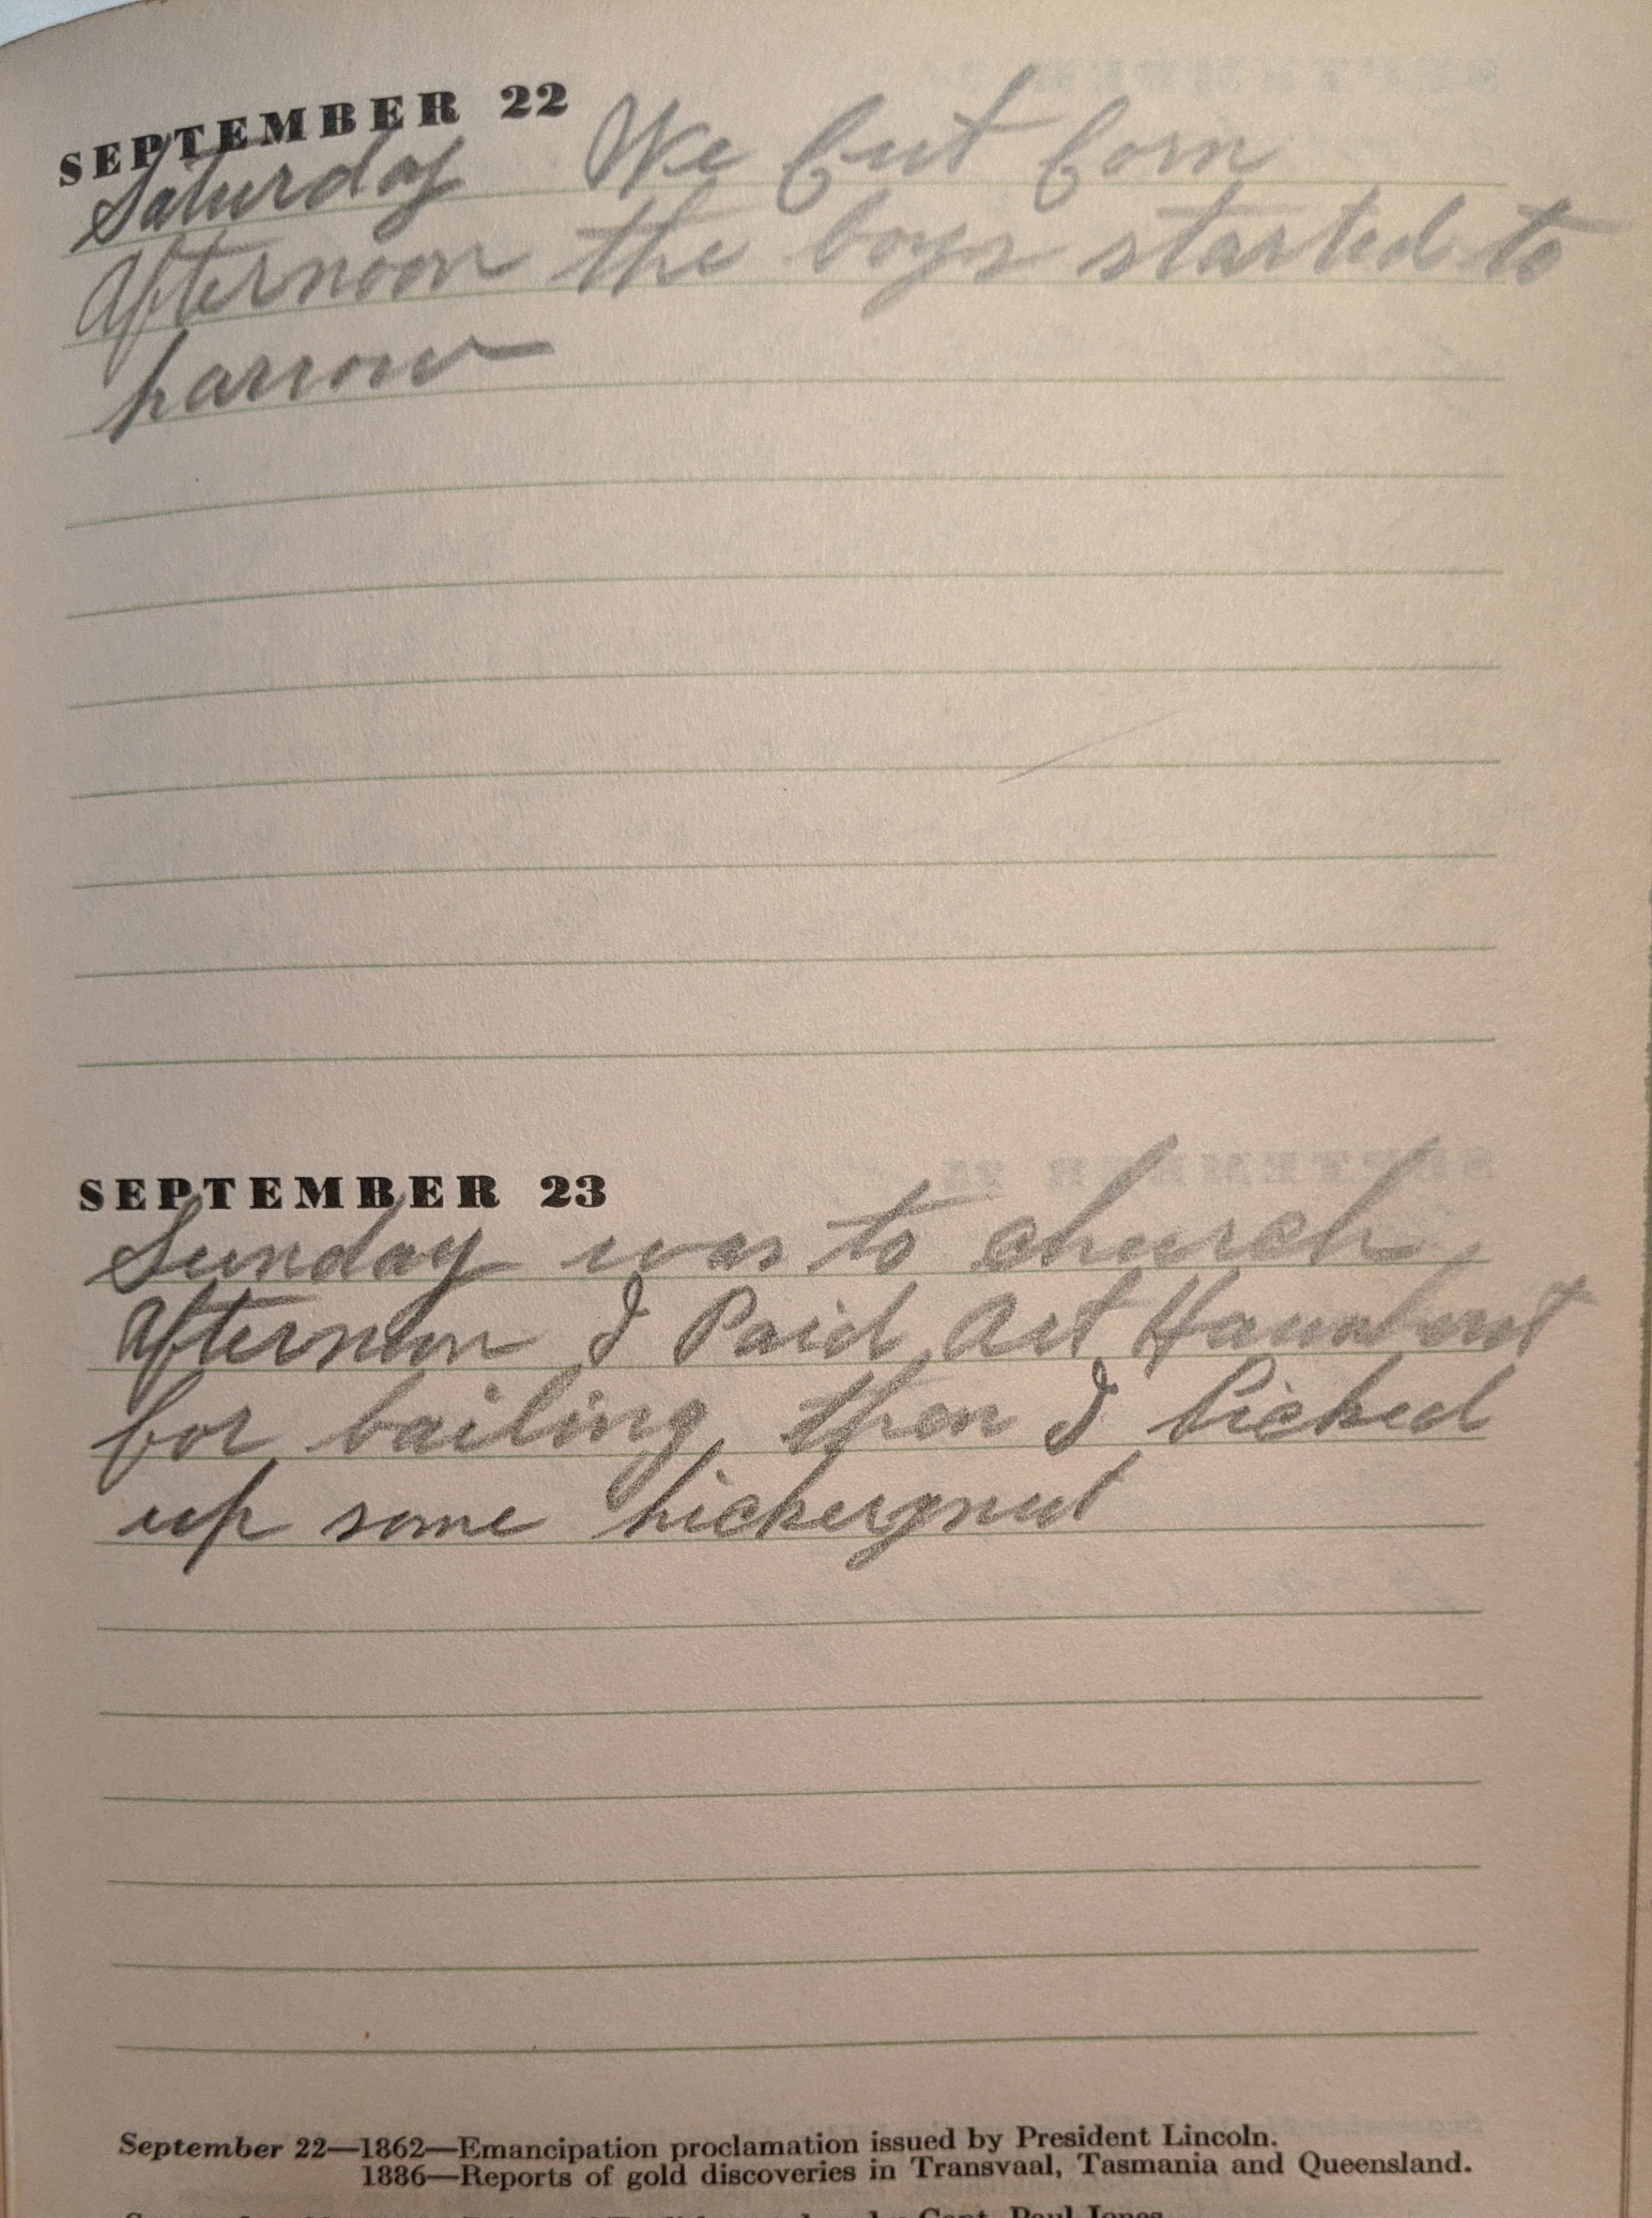 SEPTEMBER 22
Saturday We Cut Corn
Afternoon the boys started to
harrow
SEPTEMBER 23
Sunday was to church
Afternoon I Paid Art
for bailing then I Picked
up some hickergnut
September 22—1862—Emancipation proclamation issued by President Lincoln.
1886—Reports of gold discoveries in Transvaal, Tasmania and Queensland.
by Capt. Paul Jones